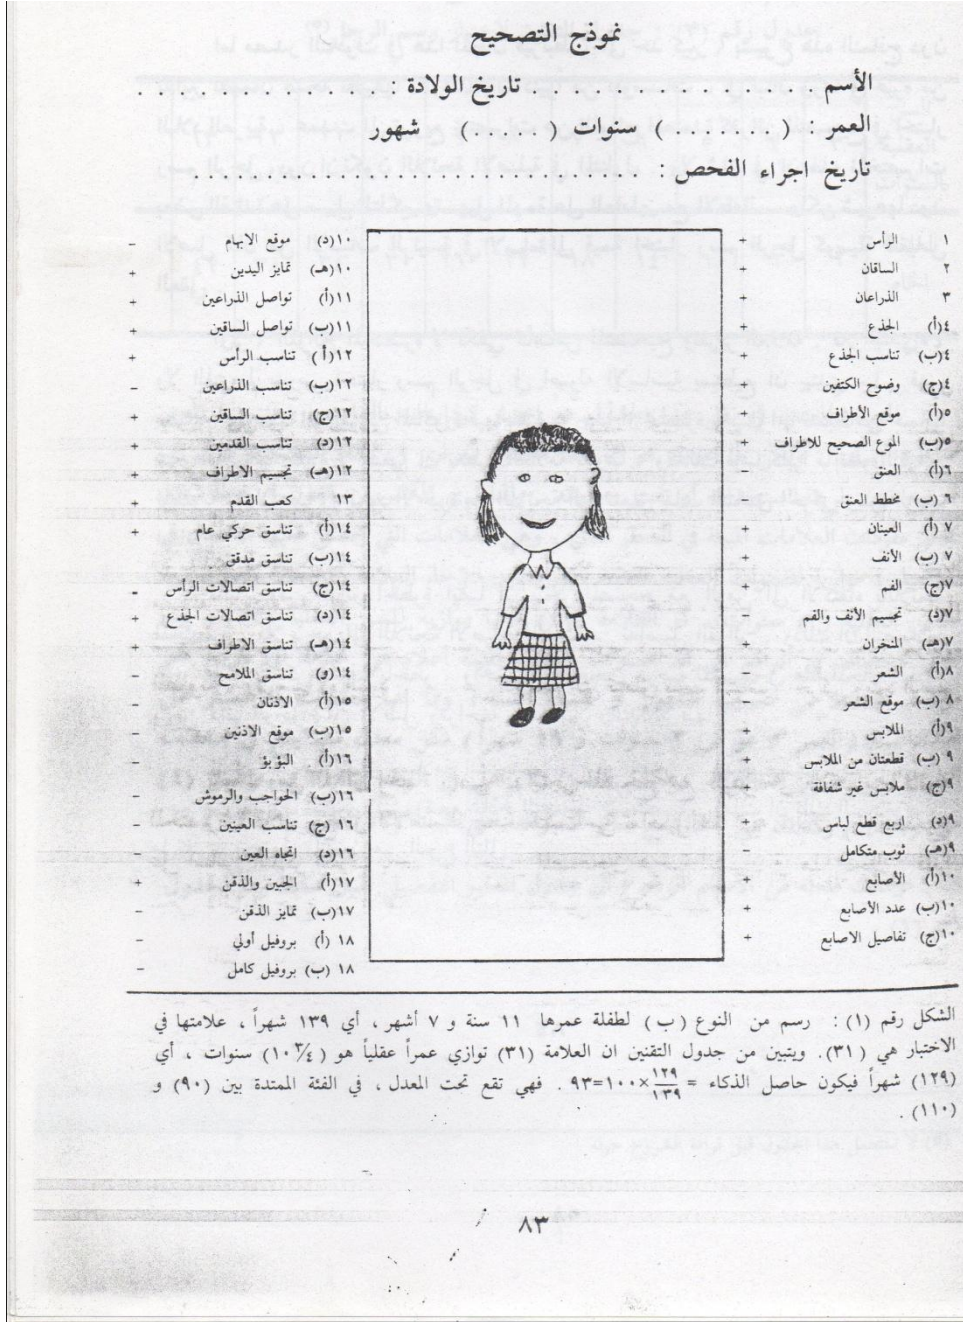 نموذج التصحيح
الأسم : . . . . . . . . . . . . تاريخ الولادة : . . . . . . . . . . . .
العمر : ( . . . . . . ) سنوات ( . . . . . . ) شهور
تاريخ اجراء الفحص : . . . . . . . . . . . . . . . .
١ الرأس +
٢ الساقان +
٣ الذراعان +
٤(أ) الجذع +
٤(ب) تناسب الجذع +
٤(ج) وضوح الكتفين +
٥(أ) موقع الأطراف +
٥(ب) الموع الصحيح للاطراف +
٦(أ) العنق –
٦ (ب) مخطط العنق
٧ (أ) العينان +
٧ (ب) الأنف +
٧(ج) الفم +
٧(د) تجسيم الأنف والفم –
٧(هـ) المنخران +
٨(أ) الشعر –
٨ (ب) موقع الشعر –
٩(أ) الملابس +
٩ (ب) قطعتان من الملابس +
٩(ج) ملابس غير شفافة +
٩(د) اربع قطع لباس +
٩(هـ) ثوب متكامل –
١٠(أ) الأصابع +
١٠(ب) عدد الأصابع +
١٠(ج) تفاصيل الاصابع +
١٠(د) موقع الابهام –
١٠(هـ) تمايز اليدين +
١١(أ) تواصل الذراعين +
١١(ب) تواصل الساقين +
١٢(أ) تناسب الرأس +
١٢(ب) تناسب الذراعين –
١٢(ج) تناسب الساقين +
١٢(د) تناسب القدمين +
١٢(هـ) تجسيم الاطراف +
١٣ كعب القدم +
١٤(أ) تناسق حركي عام +
١٤(ب) تناسق مدقق –
١٤(ج) تناسق اتصالات الرأس –
١٤(د) تناسق اتصالات الجذع +
١٤(هـ) تناسق الاطراف +
١٤(و) تناسق الملامح –
١٥(أ) الاذنان –
١٥(ب) موقع الاذنين –
١٦(أ) البؤبؤ –
١٦(ب) الحواجب والرموش –
١٦(ج) تناسب العينين –
١٦(د) اتجاه العين –
١٧(أ) الجبين والذقن +
١٧(ب) تمايز الذقن –
١٨ (أ) بروفيل أولي –
١٨ (ب) بروفيل كامل –
الشكل رقم (١) : رسم من النوع (ب) لطفلة عمرها ١١ سنة و ٧ أشهر ، أي ١٣٩ شهراً ، علامتها في
الاختبار هي (٣١). ويتبين من جدول التقنين ان العلامة (٣١) توازي عمراً عقلياً هو (١٠ ٣/٤) سنوات ، أي
(١٢٩) شهراً فيكون حاصل الذكاء = ١٢٩/١٣٩ ×١٠٠=٩٣ . فهي تقع تحت المعدل ، في الفئة الممتدة بين (٩٠) و
(١١٠) .
٨٣